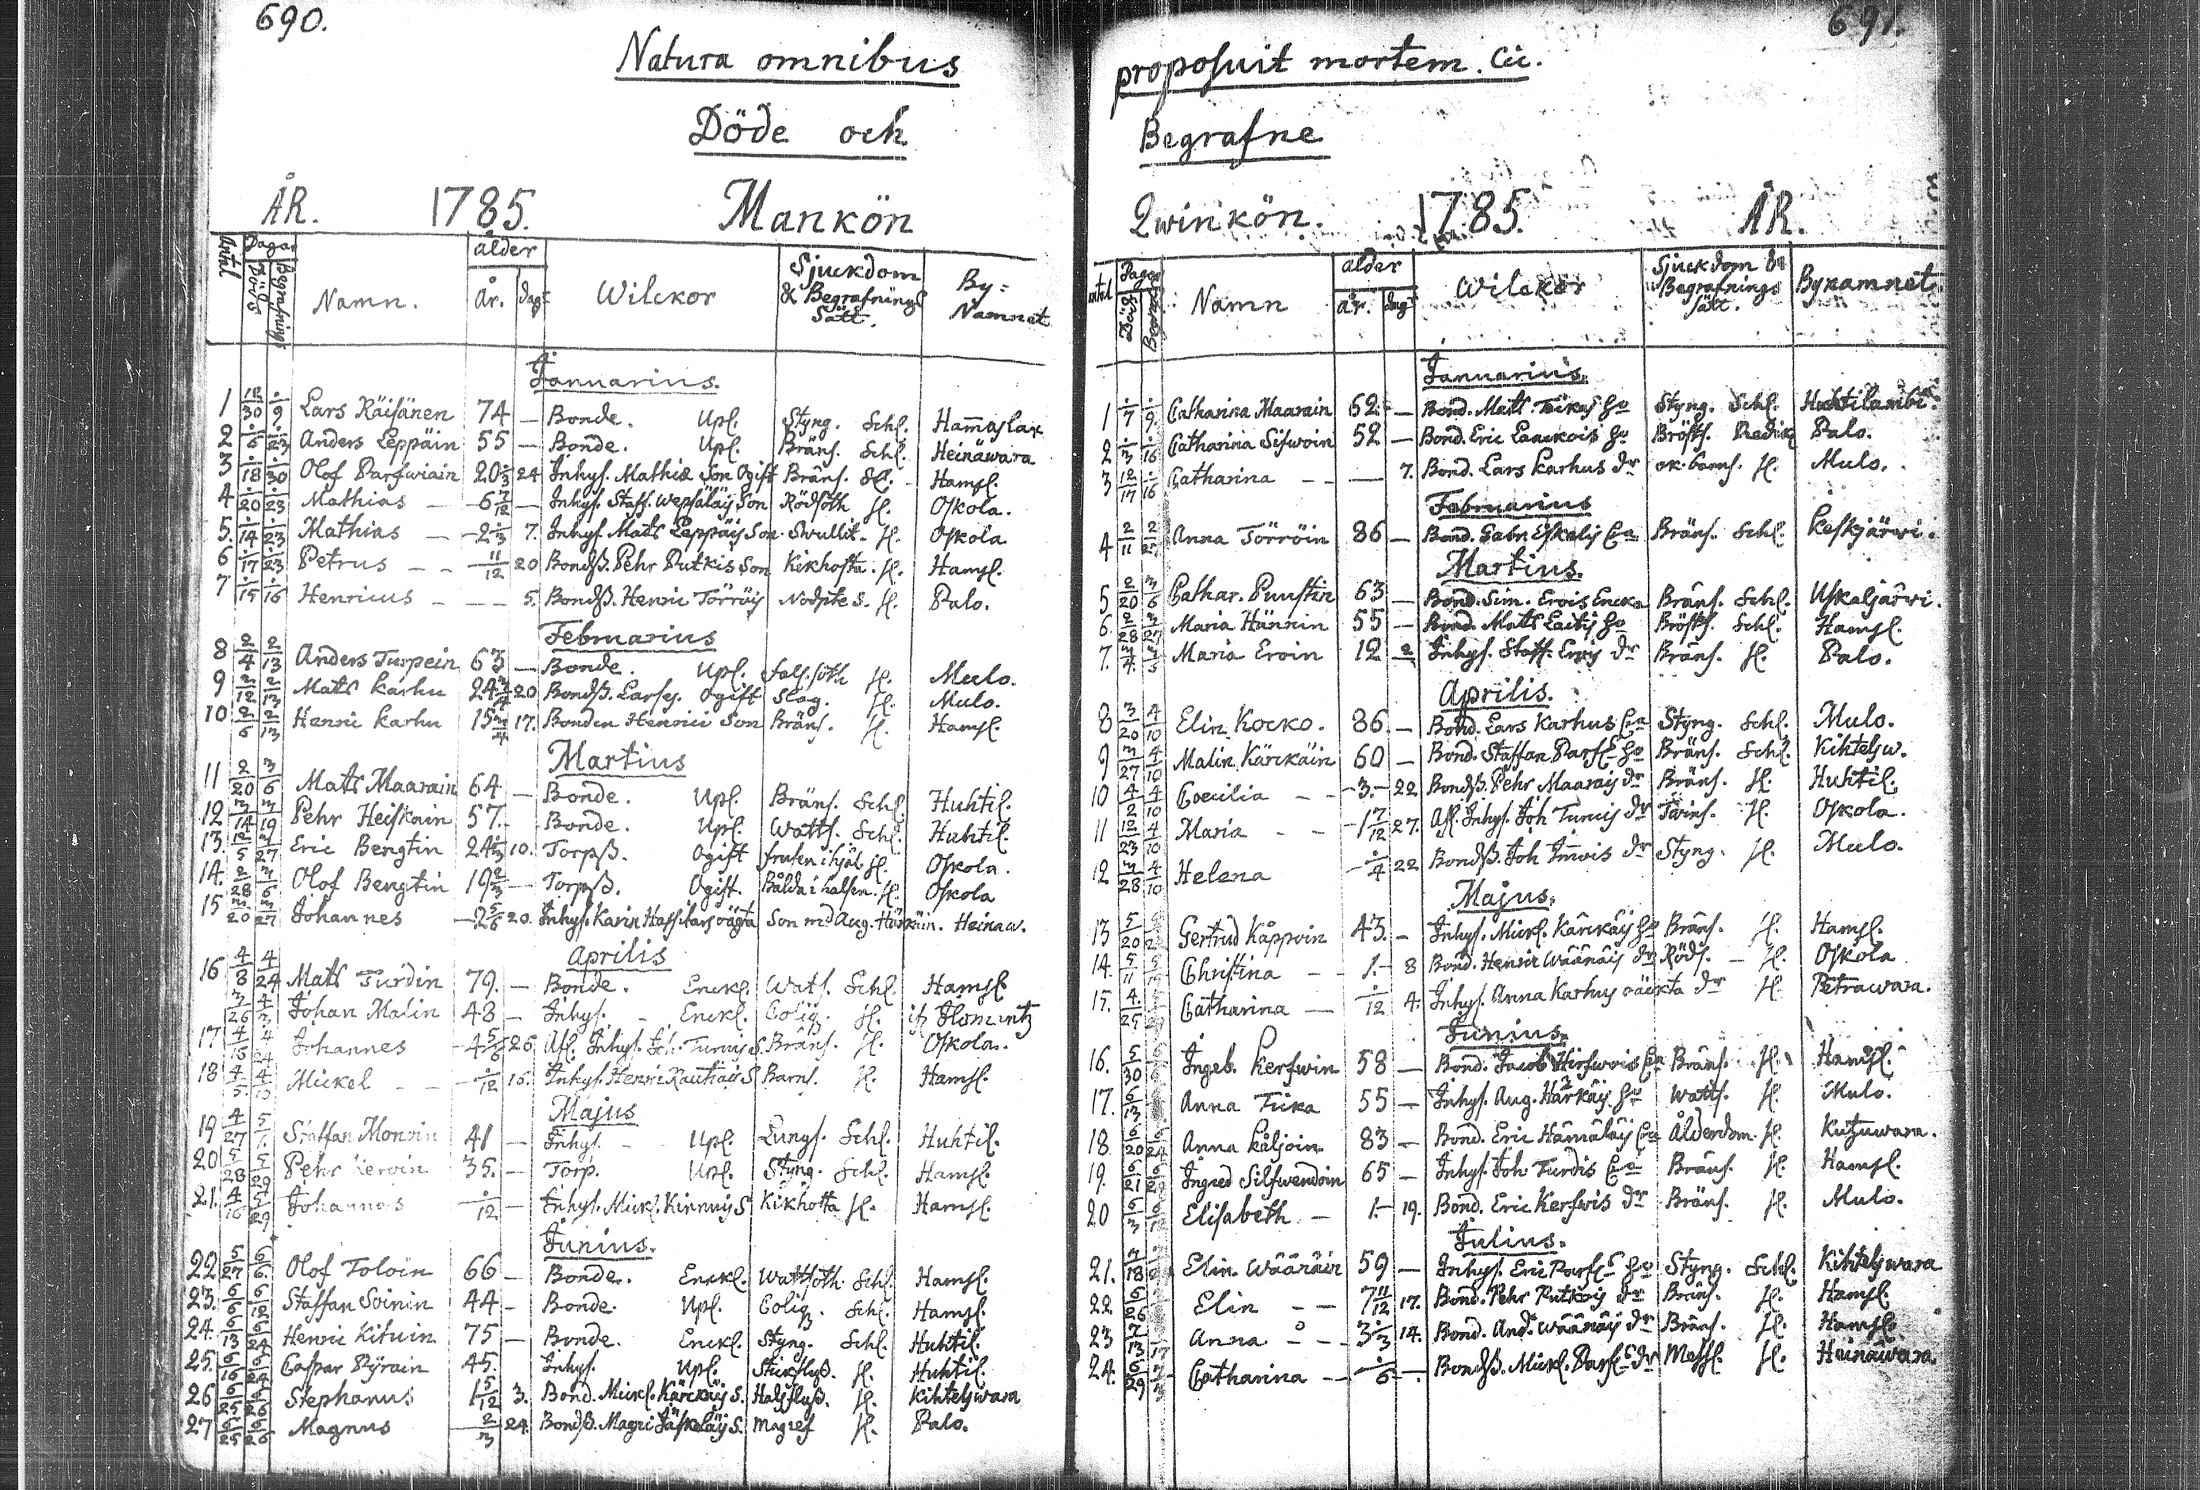 690.
Natura omnibus
Döde och
ÅR. 1785. Mankön
Antal Dagar Döds Begrafnings Namn. ålder År. dag: Wilckor Sjuckdom & Begrafnings Sätt. By= Namnet
Januarius.
1 12/30 ./9 Lars Räisänen 74 — Bonde. Upl. Styng. Schl. Hamaslax
2 ./6 ./23 Anders Leppäin 55 — Bonde. Upl. Bräns. Schl. Heinäwara
3 ./18 ./30 Olof Parfwiain 20 24 Inhys. Mathiæ Son Ogift Bräns. Sl. Hamsl.
4 ./20 ./23 Mathias — 6 7/12 — Inhys. Staff. Wepsäläis Son Rödsoth Sl. Oskola.
5. ./14 ./23 Mathias — 2 ./3 7. Inhys. Mats Leppäis Son Skrullit. Sl. Oskola
6 ./17 ./23 Petrus — — 11/12 20 Bondß. Pehr Putkis Son Kikhosta. Sl. Hamsl.
7 ./15 ./16 Henricus — — — 5. Bondß. Henric Törröis Nodpite S. Sl. Palo.
Februarius
8 2/4 2/13 Anders Turpein 63 — Bonde. Upl. fals. soth Sl. Mulo.
9 2/12 2/13 Mats Karhu 24 20 Bondß. Larses. Ogift Slag. Sl. Mulo.
10 2/6 2/13 Henric Karhu 15 17. Bonden Henrici Son Bräns. Sl. Hamsl.
Martius
11 2/20 3/6 Mats Maarain 64 — Bonde. Upl. Bräns. Schl. Huhtil.
12 3/14 3/19 Pehr Heiskain 57. — Bonde. Upl. Watts. Schl. Huhtil.
13. 12/5 3/27 Eric Bengtin 24 10. Torpß. Ogift frusen ihjäl Sl. Oskola.
14. 2/28 3/6 Olof Bengtin 19 2/3 — Torpß. Ogift. Bålda i halsen. Sl. Oskola
15 3/20 3/27 Johannes — 2 5/6 20. Inhys. Karin Hassilars oägta Son md Aug. Härkäin. Heinaw.
Aprilis
16 4/8 4/24 Mats Turdin 79. — Bonde. Enckl. Wats. Schl. Hamsl.
3/26 Johan Malin 48 — Inhys. — Enckl. Colig. Sl. Ilomantz
17 4/16 4/24 Johannes — 4 5/6 26 Afl. Inhys. Joh. Turuis S. Bräns. Sl. Oskola.
18 4/5 Mickel — — ./12 16. Inhys. Henric Rautiais S Barns. Sl. Hamsl.
Majus
19 4/27 5/1. Staffan Monoin 41 — Inhys. — Upl. Lungs. Schl. Huhtil.
20 5/28 5/29 Pehr Keroin 35. — Torp. Upl. Styng. Schl. Hamsl.
21. 4/16 5/29 Johannes ./12 — Inhys. Mickl. Kinnuis S Kikhosta Sl. Hamsl.
Junius.
22 5/27 6/6. Olof Toloin 66 — Bonde. Enckl. Wattsoth Schl. Hamsl.
23. 6/6 6/12 Staffan Soinin 44 — Bonde. Upl. Colig. Schl. Hamsl.
24. 6/13 6/24 Henric Kituin 75 — Bonde. Enckl. Styng. Schl. Huhtil.
25. 6/16 6/24 Caspar Pyrain 45. — Inhys. Upl. Stickfluß. Sl. Huhtil.
26 6/25 6/26 Stephanus 1 5/12 3. Bond. Mickl. Kärckäis S. Halsfluß. Sl. Kihtelswara
27 6/25 6/26 Magnus — 2/3 24. Bondß. Magni Jäskeläis S. Magref Sl. Palo.
691.
proposuit mortem. Cic.
Begrafne
Qwinkön. 1785. ÅR.
Antal Dagar Döds Begrafn Namn ålder år. dag Wilckor Sjuckdom & Begrafnings sätt. Bynamnet.
Januarius.
1 ./7 ./9. Catharina Maarain 62. — Bond. Matts Tuckas Ho Styng. Schl. Huhtilambi.
2 ./3 ./16 Catharina Sifwoin 52 — Bond. Eric Laackois Hu Bröstf. Palo.
3 12/17 ./16 Catharina — — — 7. Bond. Lars Karhus dr ok. barns. Sl. Mulo.
Februarius
4 2/11 2/27 Anna Törröin 86 — Bond. Gabr. Eskelis Ea Bräns. Schl. Keskjärwi.
Martius.
5 2/20 3/6 Cathar. Puustin 63 — Bond. Sim. Erois Encka Bräns. Schl. Uskaljärwi.
6. 2/28 3/27 Maria Hännin 55 — Bond. Mats Laitis Ho Bröstf. Schl. Hamsl.
7. 3/4 Maria Eroin 12 2 Inhys. Staff. Erois dr Bräns. Sl. Palo.
Aprilis.
8 3/20 4/10 Elin Kocko. 86. — Bond. Lars Karhus Ea Styng. Schl. Mulo.
9 3/27 4/10 Malin Kärckäin 60 — Bond. Staffan Parfs Ho Bräns. Schl. Kihtelsw.
10 4/2 4/10 Coecilia — — 3. — 22 Bondß. Pehr Maarais dr Bräns. Sl. Huhtil.
11 12/23 4/10 Maria — — 1 7/12 27. Afl. Inhys. Joh Turuis dr Tärins. Sl. Oskola.
12 3/28 4/10 Helena — ./4 22 Bondß. Joh Immois dr Styng. Sl. Mulo.
Majus.
13 5/20 Gertrud Käppoin 43. — Inhys. Mickl. Kärckäis Ho Bräns. Sl. Hamsl.
14. 5/11 Christina — — 1. — 8 Bond. Henric Wäänäis dr Röds. — Sl. Oskola
15. 4/25 Catharina — ./12 4. Inhys. Anna Karhus oäckta dr Sl. Petrawara.
Junius.
16. 5/30 Ingeb. Kerfwin 58 — Bond. Jacob Hirfwois Ea Bräns. Sl. Hamsl.
17. 6/13 Anna Ticka 55 — Inhys. Aug. Härkäis Ho Watts. Sl. Mulo.
18 6/20 6/24 Anna Käljoin 83 — Bond. Eric Hämäläis Ea Ålderdom. Sl. Kutzuwara.
19. 6/21 6/24 Ingred Silfwendoin 65 — Inhys. Joh Turdis Ea Bräns. Sl. Hamsl.
20 6/3 6/12 Elisabeth — 1. — 19. Bond. Eric Kerfwis dr Bräns. Sl. Mulo.
Julius.
21. 7/18 Elin Wäänäin 59 — Inhys. Eric Parfs Ho Styng. Schl. Kihtelswara
22 6/26 Elin — — 7 11/12 17. Bond. Pehr Putkois dr Bräns. Sl. Hamsl.
23 7/13 7/17 Anna — — 3 ./3 14. Bond. And. Wäänäis dr Bräns. Sl. Hamsl.
24. 6/29 7/3 Catharina — ./6 — Bondß. Mickl. Parfs dr Messl. Sl. Heinäwara